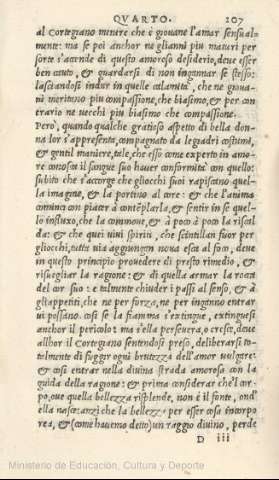 QVARTO. 207
al Cortegiano mentre che è giouane l'amar sensual-
mente: ma se poi anchor ne gliamni piu maturi per
sorte s'accende di questo amoroso desiderio, deue esser
ben cauto, & guardarsi di non ingannar se stesso:
lasciandosi indur in quelle calamità, che ne gioua-
ni meritano piu compassione, che biasimo, & per con
trario ne uecchi piu biasimo che compassione.
Però, quando qualche gratioso aspetto di bella don-
na lor s'appresenta, compagnato da leggiadri costumi,
& gentil maniere, tale, che esso come experto in amo-
re conosca il sangue suo hauer conformità con quello:
subito che s'accorge che gliocchi suoi rapiscano quel-
la imagine, & la portino al core: & che l'anima
cominci con piacer a contéplarla, & sentir in se quel-
lo influxo, che la commoue, & à poco à poco la riscal
da: & che quei uiui spiriti, che scintillan fuor per
gliocchi, tutta uia aggiungan noua esca al foco, deue
in questo principio prouedere di presto rimedio, &
risuegliar la ragione: & di quella armar la rocca
del cor suo: e talmente chiuder i passi al senso, & à
gliappetiti, che ne per forza, ne per inganno entrar
ui possano. cosi se la fiamma s'extingue, extinguesi
anchor il pericolo: ma s'ella perseuera, o cresce, deue
allhor il Cortegiano sentendosi preso, deliberarsi to-
talmente di fuggir ogni bruttezza dell'amor uulgare:
& cosi entrar nella diuina strada amorosa con la
guida della ragione: & prima considerar che'l cor-
po, oue quella bellezza risplende, non è il fonte, ond'
ella nasce: anzi che la bellezza per esser cosa incorpo
rea, & (come hauemo detto) un raggio diuino, perde
D iii
Ministerio de Educación, Cultura y Deporte